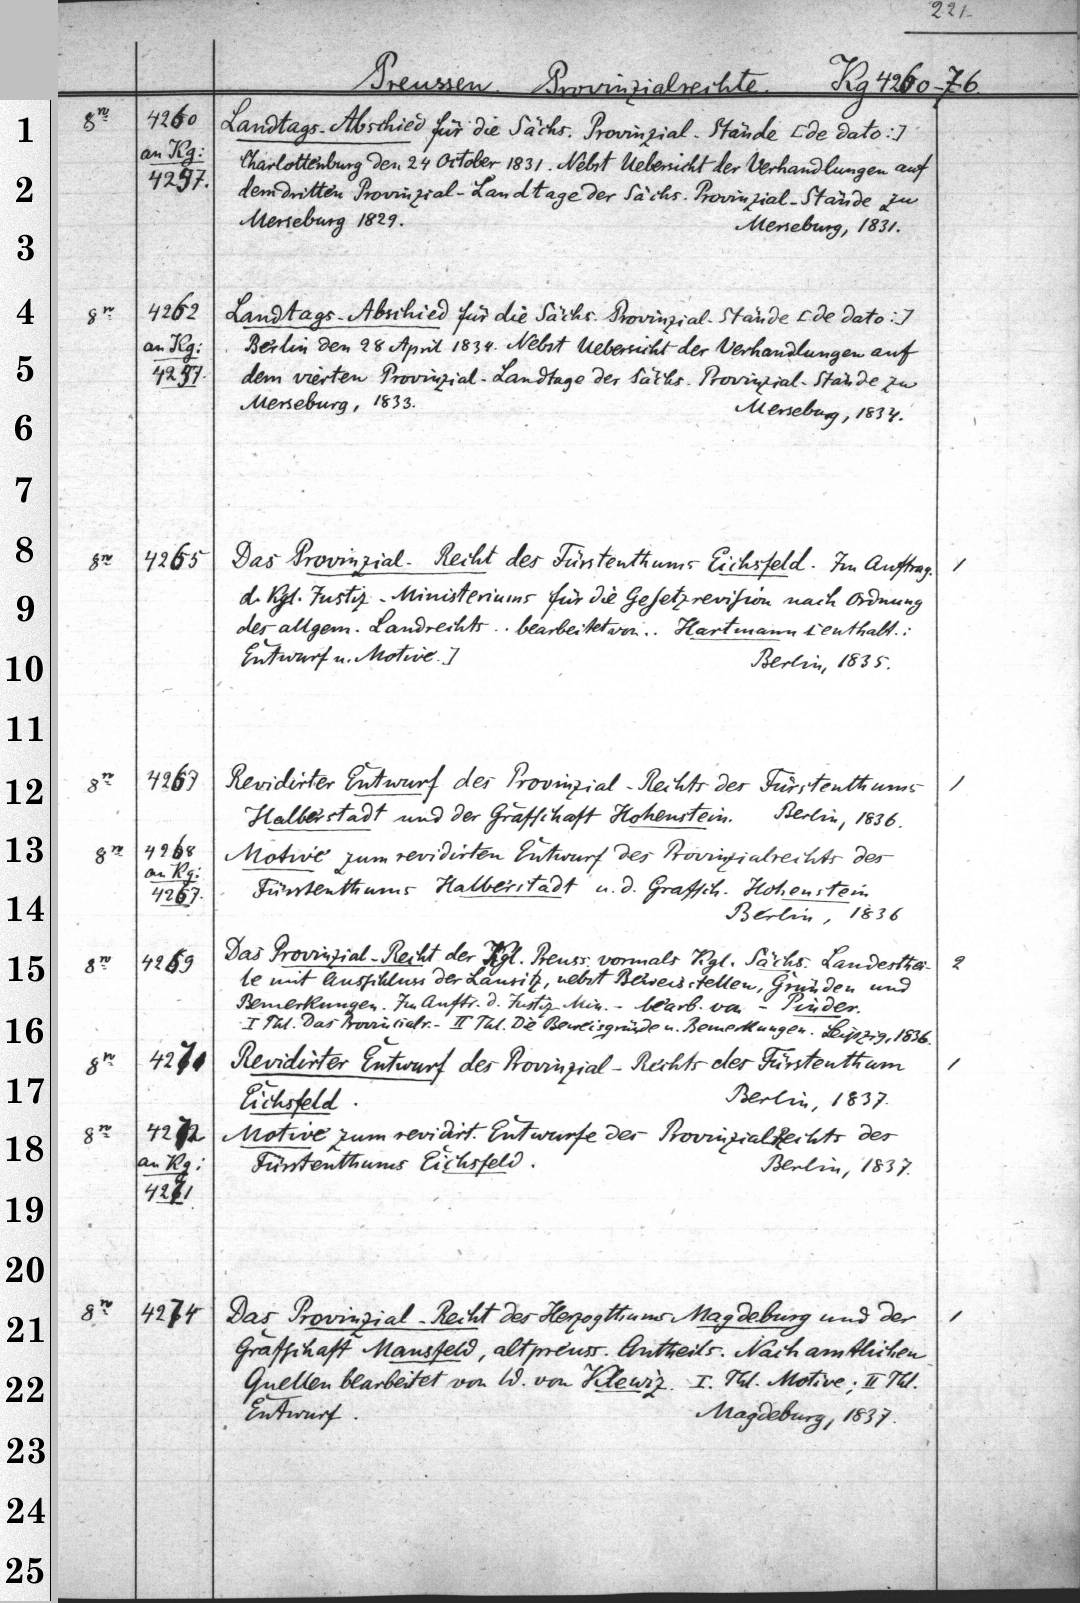 221
Preussen. Provinzialrechte. Kg 4260-76.
8º 4260 Landtags-Abschied für die Sächs. Provinzial-Stände [de dato:]
an Kg: Charlottenburg den 24 October 1831. Nebst Uebersicht der Verhandlungen auf
4257. dem dritten Provinzial-Landtage der Sächs. Provinzial-Stände zu
Merseburg 1829. Merseburg, 1831.
8º 4262 Landtags-Abschied für die Sächs. Provinzial-Stände [de dato:]
an Kg: Berlin den 28 April 1834. Nebst Uebersicht der Verhandlungen auf
4257. dem vierten Provinzial-Landtage der Sächs. Provinzial-Stände zu
Merseburg, 1833. Merseburg, 1834.
8º 4265 Das Provinzial-Recht des Fürstenthums Eichsfeld. Im Auftrag. 1
d. Kgl. Justiz-Ministeriums für die Gesetzrevision nach Ordnung
des allgem. Landrechts .. bearbeitet von .. Hartmann [enthalt.:
Entwurf u. Motive.] Berlin, 1835.
8º 4267 Revidirter Entwurf des Provinzial-Rechts des Fürstenthums 1
Halberstadt und der Grafschaft Hohenstein. Berlin, 1836.
8º 4268 Motive zum revidirten Entwurf des Provinzialrechts des
an Kg: 4267. Fürstenthums Halberstadt u. d. Grafsch. Hohenstein
Berlin, 1836
8º 4269 Das Provinzial-Recht der Kgl. Preuss. vormals Kgl. Sächs. Landesthei- 2
le mit Ausschluss der Lausitz, nebst Beweisstellen, Gründen und
Bemerkungen. Im Auftr. d. Justiz Min. - bearb. von - Pinder.
I Thl. Das Provincialr. - II Thl. Die Beweisgründe u. Bemerkungen. Leipzig, 1836.
8º 4271 Revidirter Entwurf des Provinzial-Rechts des Fürstenthum 1
Eichsfeld. Berlin, 1837.
8º 4272 Motive zum revidirt. Entwurfe des Provinzialrechts des
an Kg: Fürstenthums Eichsfeld. Berlin, 1837.
4271
8º 4274 Das Provinzial-Recht des Herzogthums Magdeburg und der 1
Grafschaft Mansfeld, altpreuss. Antheils. Nach amtlichen
Quellen bearbeitet von W. von Klewiz. I. Thl. Motive; II Thl.
Entwurf. Magdeburg, 1837.
1
2
3
4
5
6
7
8
9
10
11
12
13
14
15
16
17
18
19
20
21
22
23
24
25